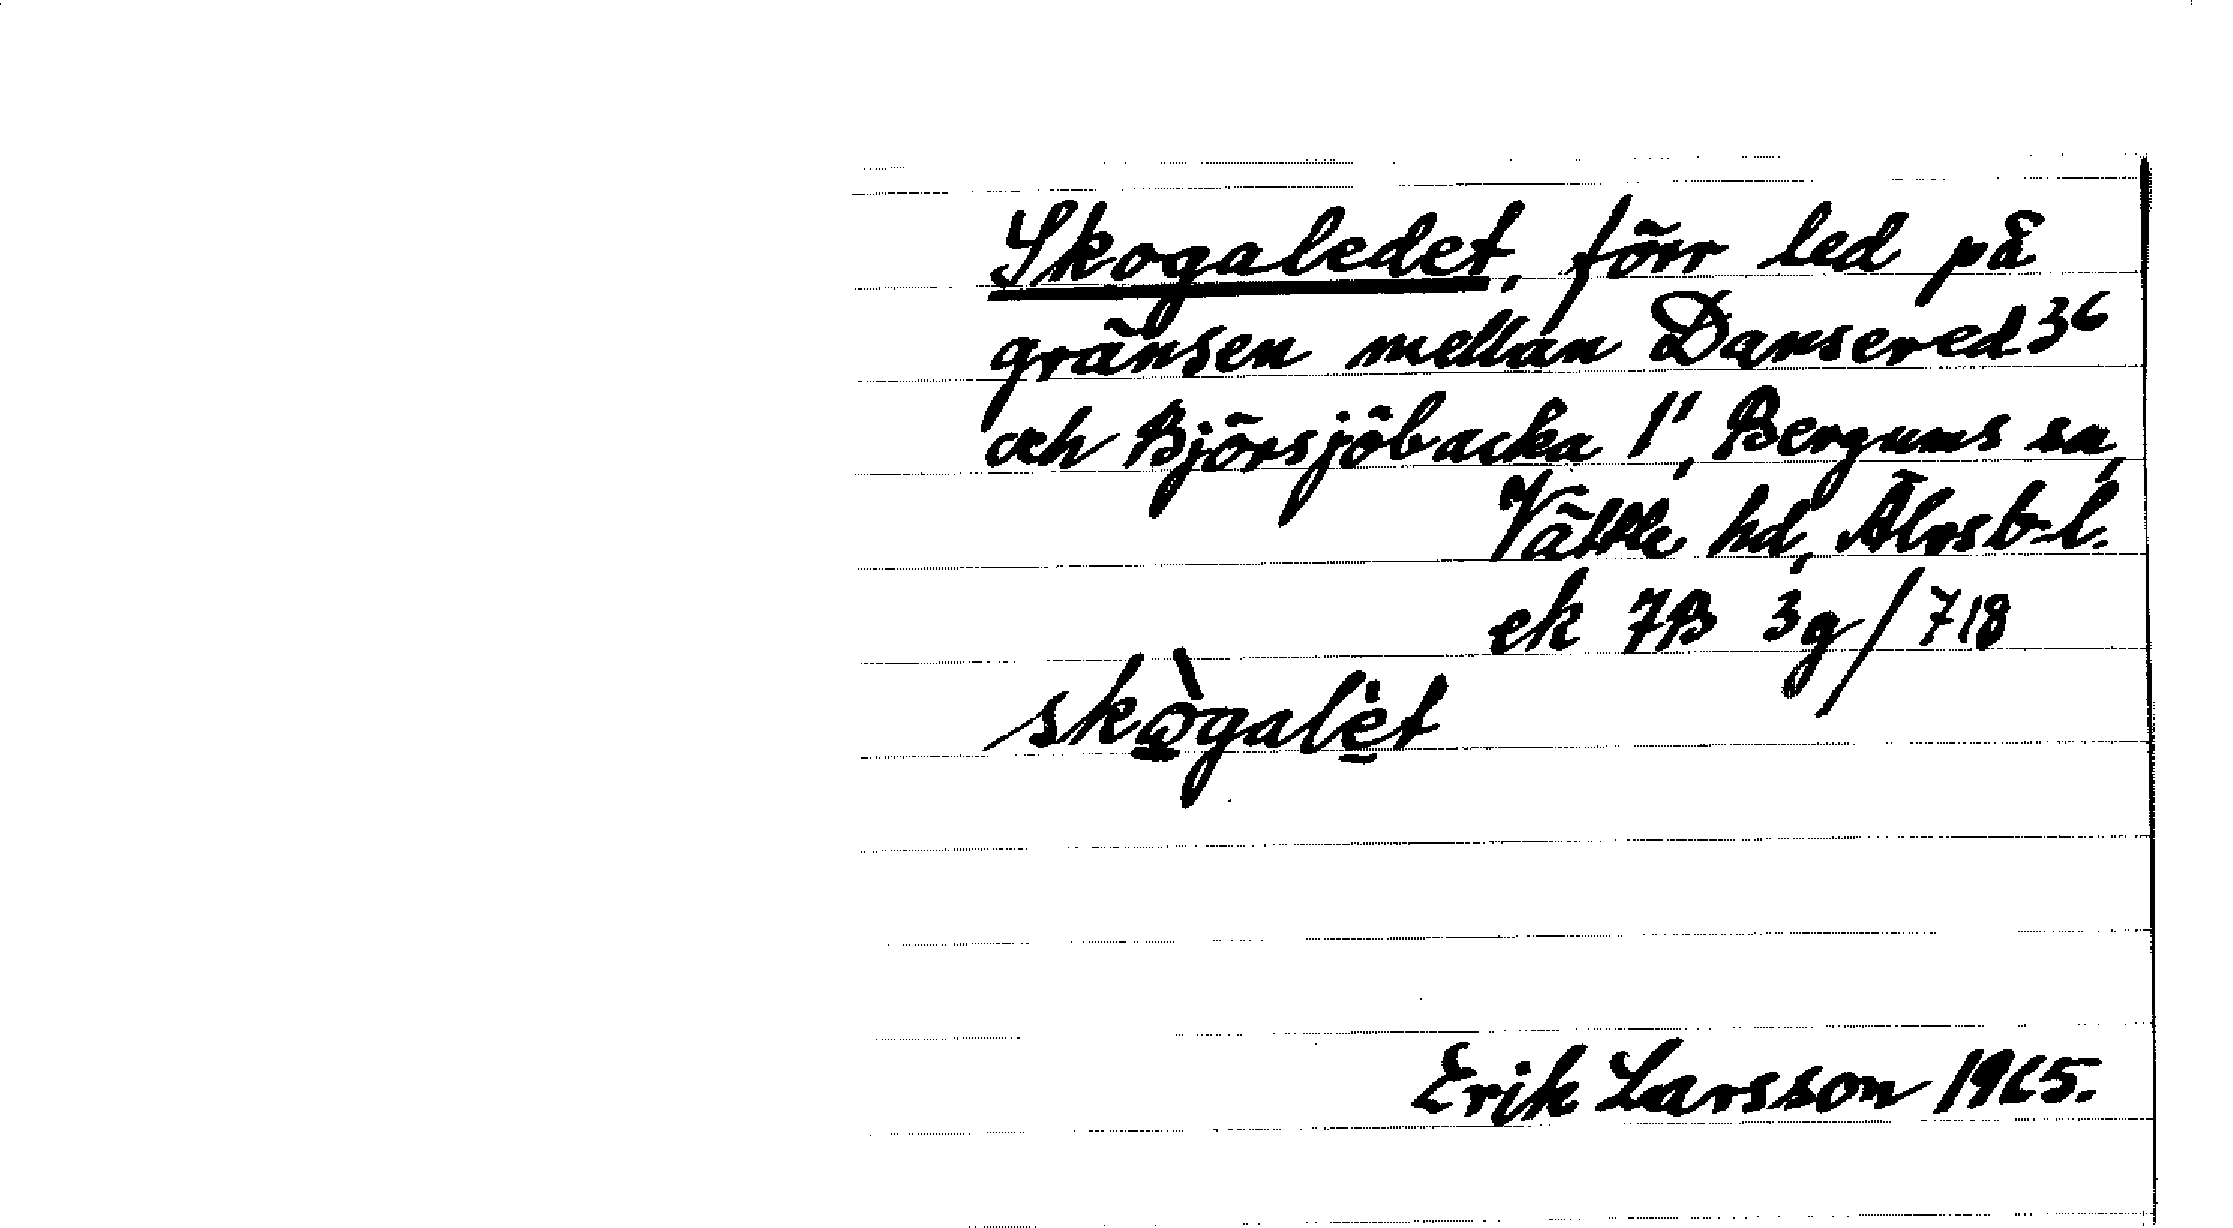 Skogaledet, förr led på
gränsen mellan Dansered 3⁶
och Björsjöbacka 1¹, Bergums sn,
Vättle hd, Älvsb. l.
ek 7B 3g/718
skò̲galė̲t
Erik Larsson 1965.